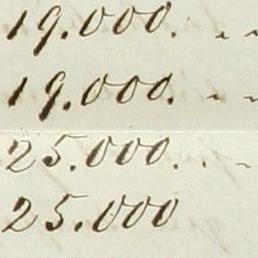 19.000. „
19.000. „
25.000. „
25.000